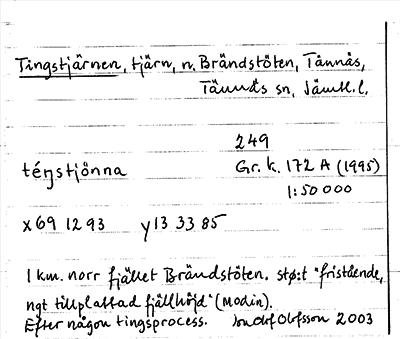 Tingstjärnen, tjärn, n. Brändstöten, Tännäs,
Tännäs sn, Jämtl. l.
249
téŋstjönna Gr. k. 172 A (1995)
1:50 000
x 69 12 93 y 13 33 85
1 km. norr fjället Brändstöten, stø:t "fristående,
ngt tillplattad fjällhöjd" (Modin).
Efter någon tingsprocess. Olofsson 2003